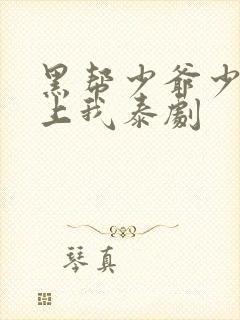 黑帮少爷少
上我泰劇
琴真